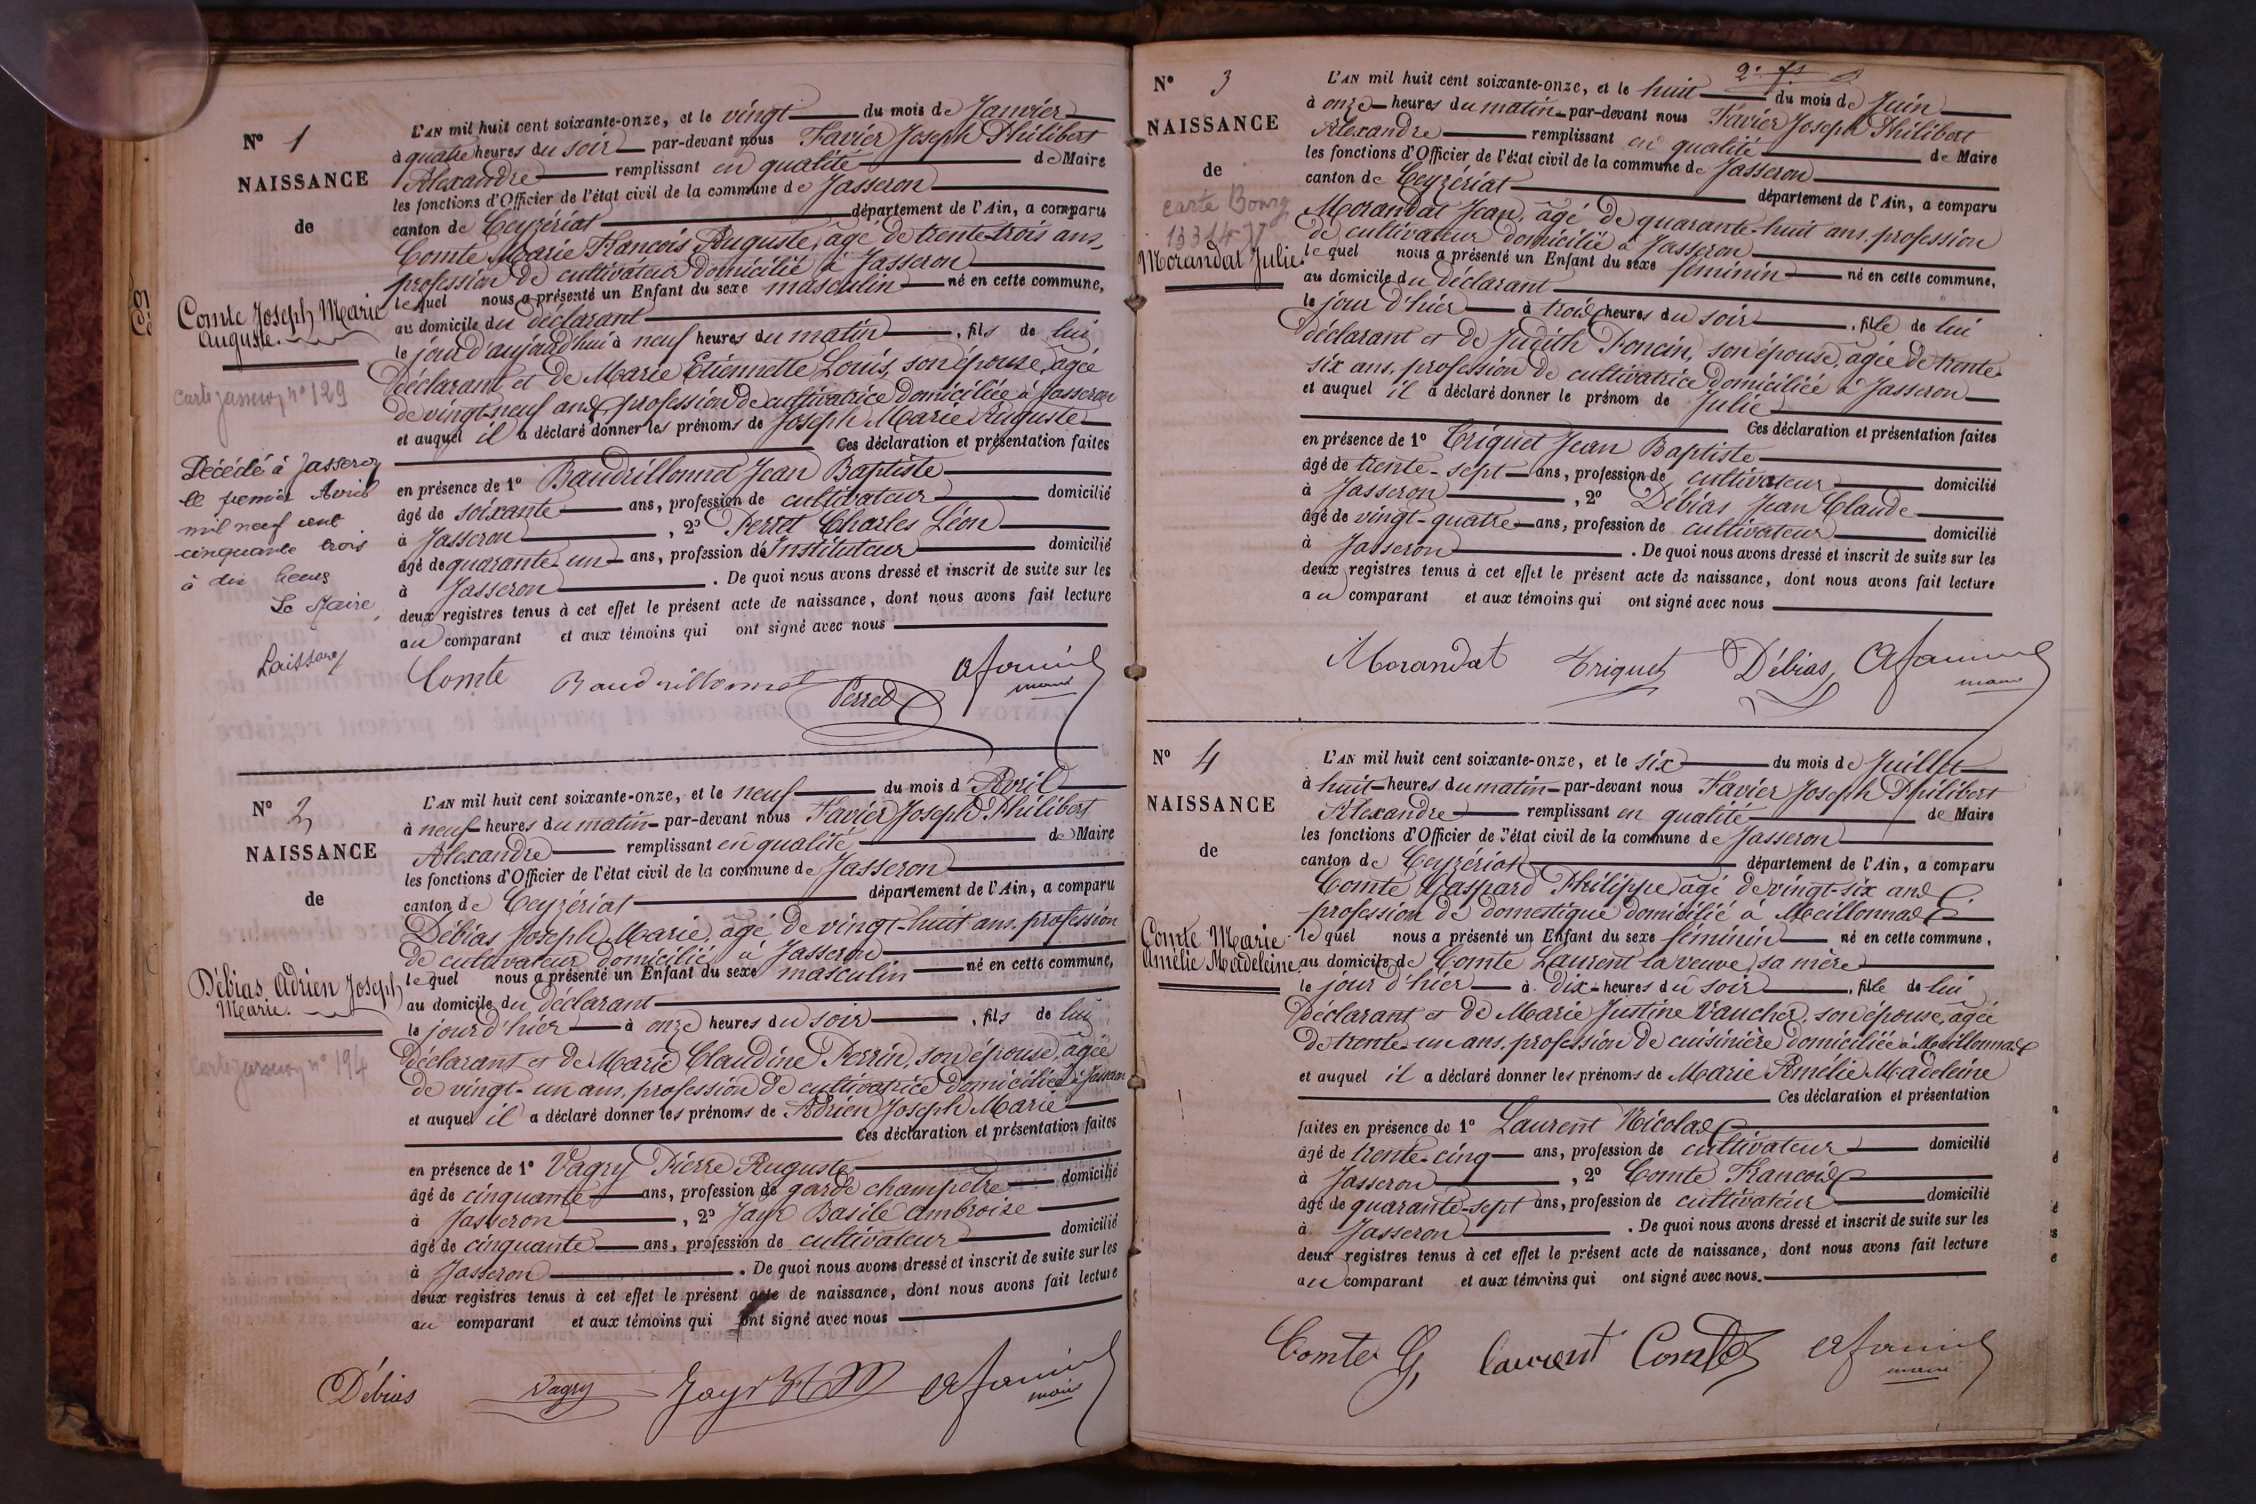 N° 1
NAISSANCE
de
Comte Joseph Marie
Auguste.
carte Jasseron n° 129
Décédé à Jasseron
le premier Avril
mil neuf cent
cinquante trois
à dix heures
Le Maire,
L'AN mil huit cent soixante-onze, et le vingt du mois de Janvier
à quatre heures du soir par-devant nous Favier Joseph Philibert
Alexandre remplissant en qualité de Maire
les fonctions d'Officier de l'état civil de la commune de Jasseron
canton de Ceyzériat département de l'Ain, a comparu
Comte Marie François Auguste, âgé de trente-trois ans,
profession de cultivateur domicilié à Jasseron
lequel nous a présenté un Enfant du sexe masculin né en cette commune,
au domicile du déclarant
le jour d'aujourd'hui à neuf heures du matin, fils de lui
déclarant et de Marie Etiennette Louis, son épouse, âgée
de vingt-neuf ans, profession de cultivatrice domiciliée à Jasseron
et auquel il a déclaré donner les prénoms de Joseph Marie Auguste
Ces déclaration et présentation faites
en présence de 1° Baudrillonnet Jean Baptiste
âgé de soixante ans, profession de cultivateur domicilié
à Jasseron, 2° Perret Charles Léon
âgé de quarante-un ans, profession de Instituteur domicilié
à Jasseron. De quoi nous avons dressé et inscrit de suite sur les
deux registres tenus à cet effet le présent acte de naissance, dont nous avons fait lecture
au comparant et aux témoins qui ont signé avec nous
Comte Baudrillonnet Perret afavier
maire
N° 2
NAISSANCE
de
Débias Adrien Joseph
Marie.
carte Jasseron n° 194
L'AN mil huit cent soixante-onze, et le neuf du mois d'Avril
à neuf heures du matin par-devant nous Favier Joseph Philibert
Alexandre remplissant en qualité de Maire
les fonctions d'Officier de l'état civil de la commune de Jasseron
canton de Ceyzériat département de l'Ain, a comparu
Débias Joseph Marie, âgé de vingt-huit ans, profession
de cultivateur domicilié à Jasseron
lequel nous a présenté un Enfant du sexe masculin né en cette commune,
au domicile du déclarant
le jour d'hier à onze heures du soir, fils de lui
déclarant et de Marie Claudine Perrin, son épouse, âgée
de vingt-un ans, profession de cultivatrice domiciliée à Jasseron
et auquel il a déclaré donner les prénoms de Adrien Joseph Marie
Ces déclaration et présentation faites
en présence de 1° Vagry Pierre Auguste
âgé de cinquante ans, profession de garde champêtre domicilié
à Jasseron, 2° Jayr Basile Ambroise
âgé de cinquante ans, profession de cultivateur domicilié
à Jasseron. De quoi nous avons dressé et inscrit de suite sur les
deux registres tenus à cet effet le présent acte de naissance, dont nous avons fait lecture
au comparant et aux témoins qui ont signé avec nous
Débias Vagry Jayr afavier
maire
N° 3
NAISSANCE
de
carte Bourg
Morandat Julie.
L'AN mil huit cent soixante-onze, et le huit du mois de Juin
à onze heures du matin par-devant nous Favier Joseph Philibert
Alexandre remplissant en qualité de Maire
les fonctions d'Officier de l'état civil de la commune de Jasseron
canton de Ceyzériat département de l'Ain, a comparu
Morandat Jean, âgé de quarante-huit ans, profession
de cultivateur domicilié à Jasseron
lequel nous a présenté un Enfant du sexe féminin né en cette commune,
au domicile du déclarant
le jour d'hier à trois heures du soir, fille de lui
déclarant et de Judith Poncin, son épouse, âgée de trente-
six ans, profession de cultivatrice domiciliée à Jasseron
et auquel il a déclaré donner le prénom de Julie
Ces déclaration et présentation faites
en présence de 1° Triquet Jean Baptiste
âgé de trente-sept ans, profession de cultivateur domicilié
à Jasseron, 2° Débias Jean Claude
âgé de vingt-quatre ans, profession de cultivateur domicilié
à Jasseron. De quoi nous avons dressé et inscrit de suite sur les
deux registres tenus à cet effet le présent acte de naissance, dont nous avons fait lecture
au comparant et aux témoins qui ont signé avec nous
Morandat Triquet Débias afavier
maire
N° 4
NAISSANCE
de
Comte Marie
Amélie Madeleine.
L'AN mil huit cent soixante-onze, et le six du mois de Juillet
à huit heures du matin par-devant nous Favier Joseph Philibert
Alexandre remplissant en qualité de Maire
les fonctions d'Officier de l'état civil de la commune de Jasseron
canton de Ceyzériat département de l'Ain, a comparu
Comte Gaspard Philippe âgé de vingt-six ans
profession de domestique domicilié à Meillonnas
lequel nous a présenté un Enfant du sexe féminin né en cette commune,
au domicile de Comte Laurent la veuve, sa mère
le jour d'hier à dix heures du soir, fille de lui
déclarant et de Marie Justine Vaucher, son épouse, âgée
de trente-un ans, profession de cuisinière domiciliée à Meillonnas
et auquel il a déclaré donner les prénoms de Marie Amélie Madeleine
Ces déclaration et présentation
faites en présence de 1° Laurent Nicolas
âgé de trente-cinq ans, profession de cultivateur domicilié
à Jasseron, 2° Comte François
âgé de quarante-sept ans, profession de cultivateur domicilié
à Jasseron. De quoi nous avons dressé et inscrit de suite sur les
deux registres tenus à cet effet le présent acte de naissance, dont nous avons fait lecture
au comparant et aux témoins qui ont signé avec nous.
Comte G, Laurent Comte afavier
maire